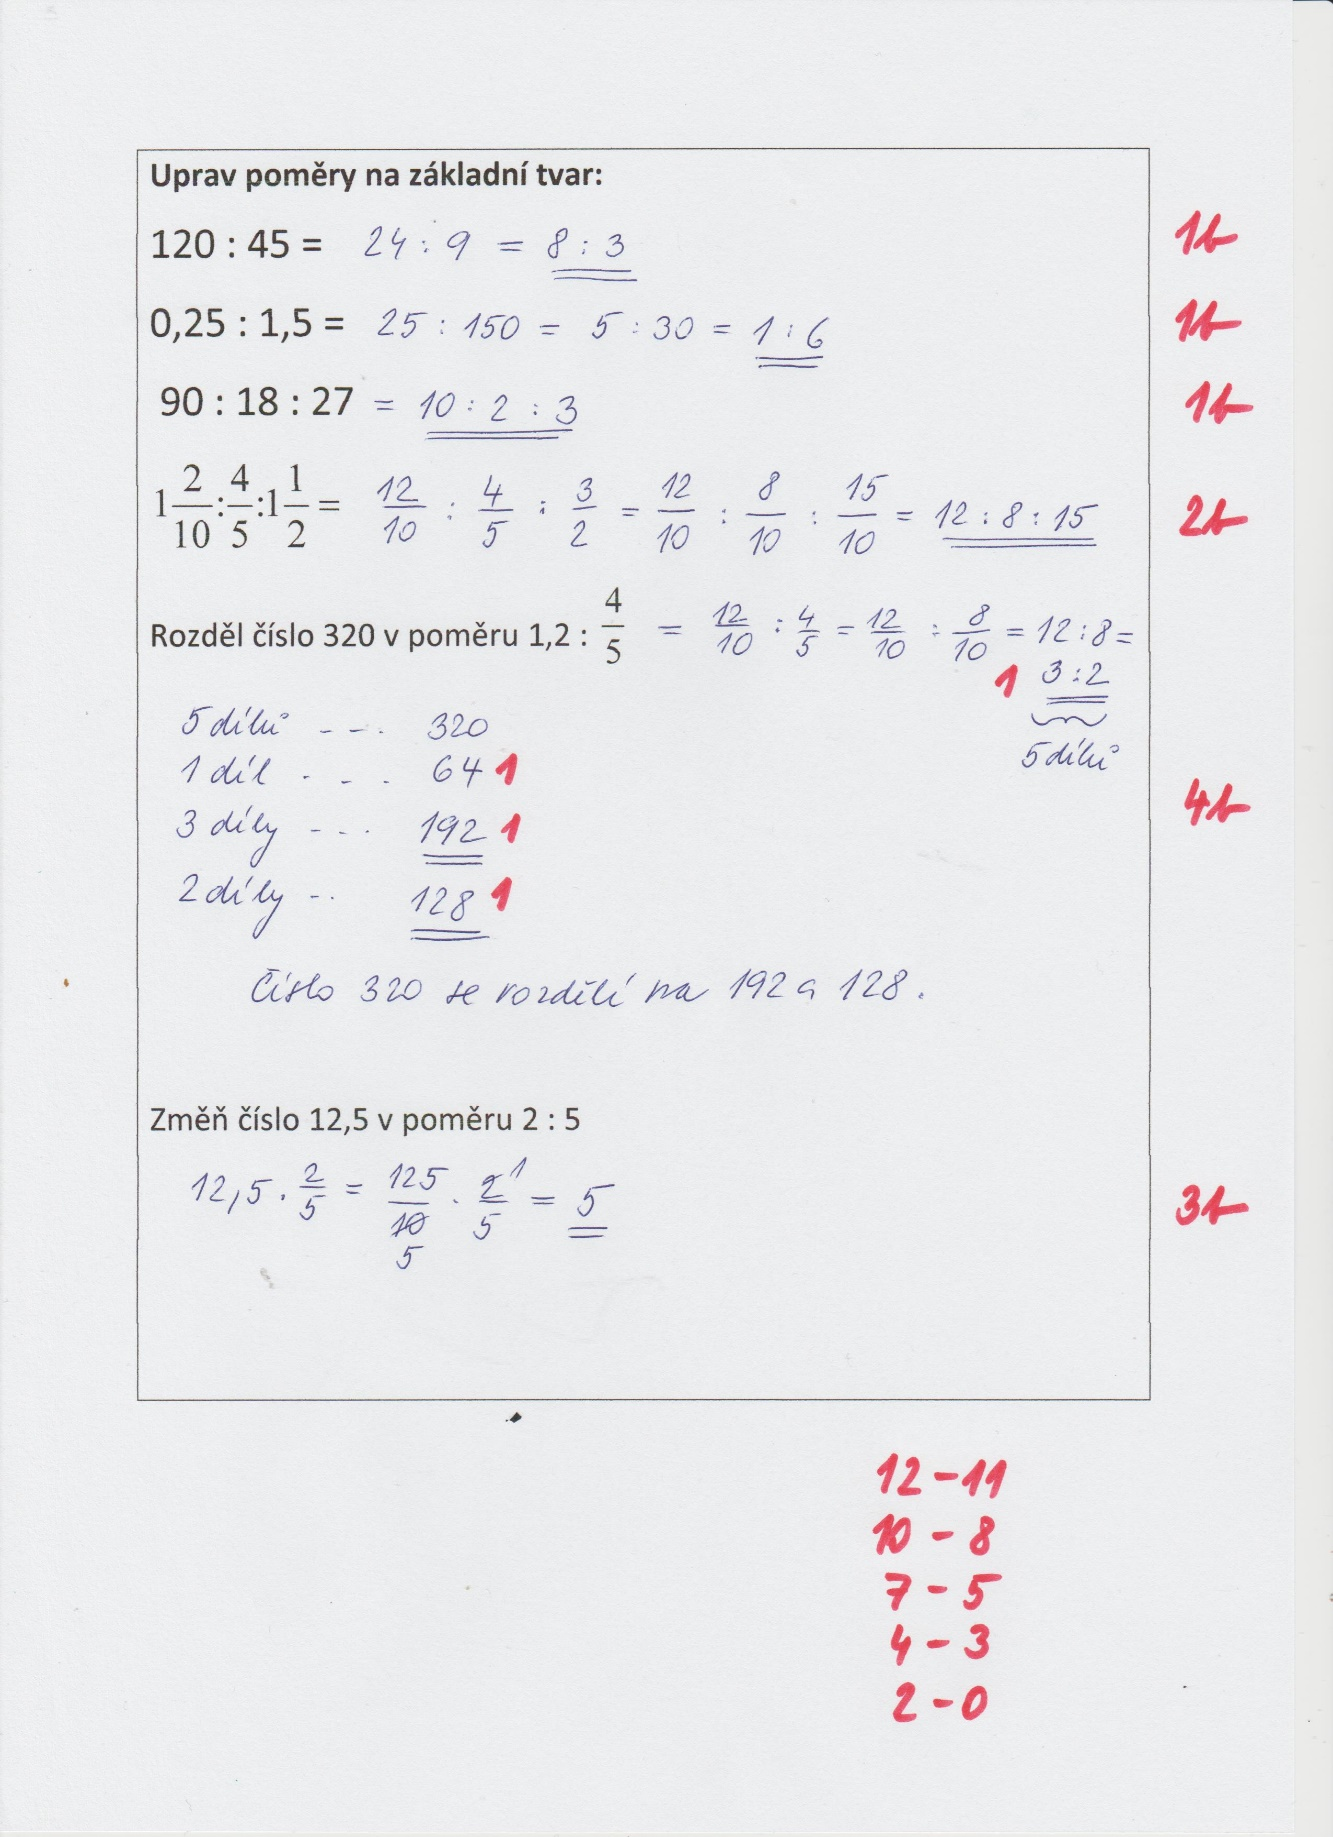 Uprav poměry na základní tvar:
120 : 45 = 24 : 9 = 8 : 3 1b
0,25 : 1,5 = 25 : 150 = 5 : 30 = 1 : 6 1b
90 : 18 : 27 = 10 : 2 : 3 1b
1 2/10 : 4/5 : 1 1/2 = 12/10 : 4/5 : 3/2 = 12/10 : 8/10 : 15/10 = 12 : 8 : 15 2b
Rozděl číslo 320 v poměru 1,2 : 4/5 = 12/10 : 4/5 = 12/10 : 8/10 = 12 : 8 =
1 3 : 2
5 dílů - - . 320
5 dílů
1 díl . - . 64 1
4b
3 díly - - . 192 1
2 díly - . 128 1
Číslo 320 se rozdělí na 192 a 128.
Změň číslo 12,5 v poměru 2 : 5
12,5 . 2/5 = 125/10 . 2/5 = 5 3b
1
5
12 - 11
10 - 8
7 - 5
4 - 3
2 - 0